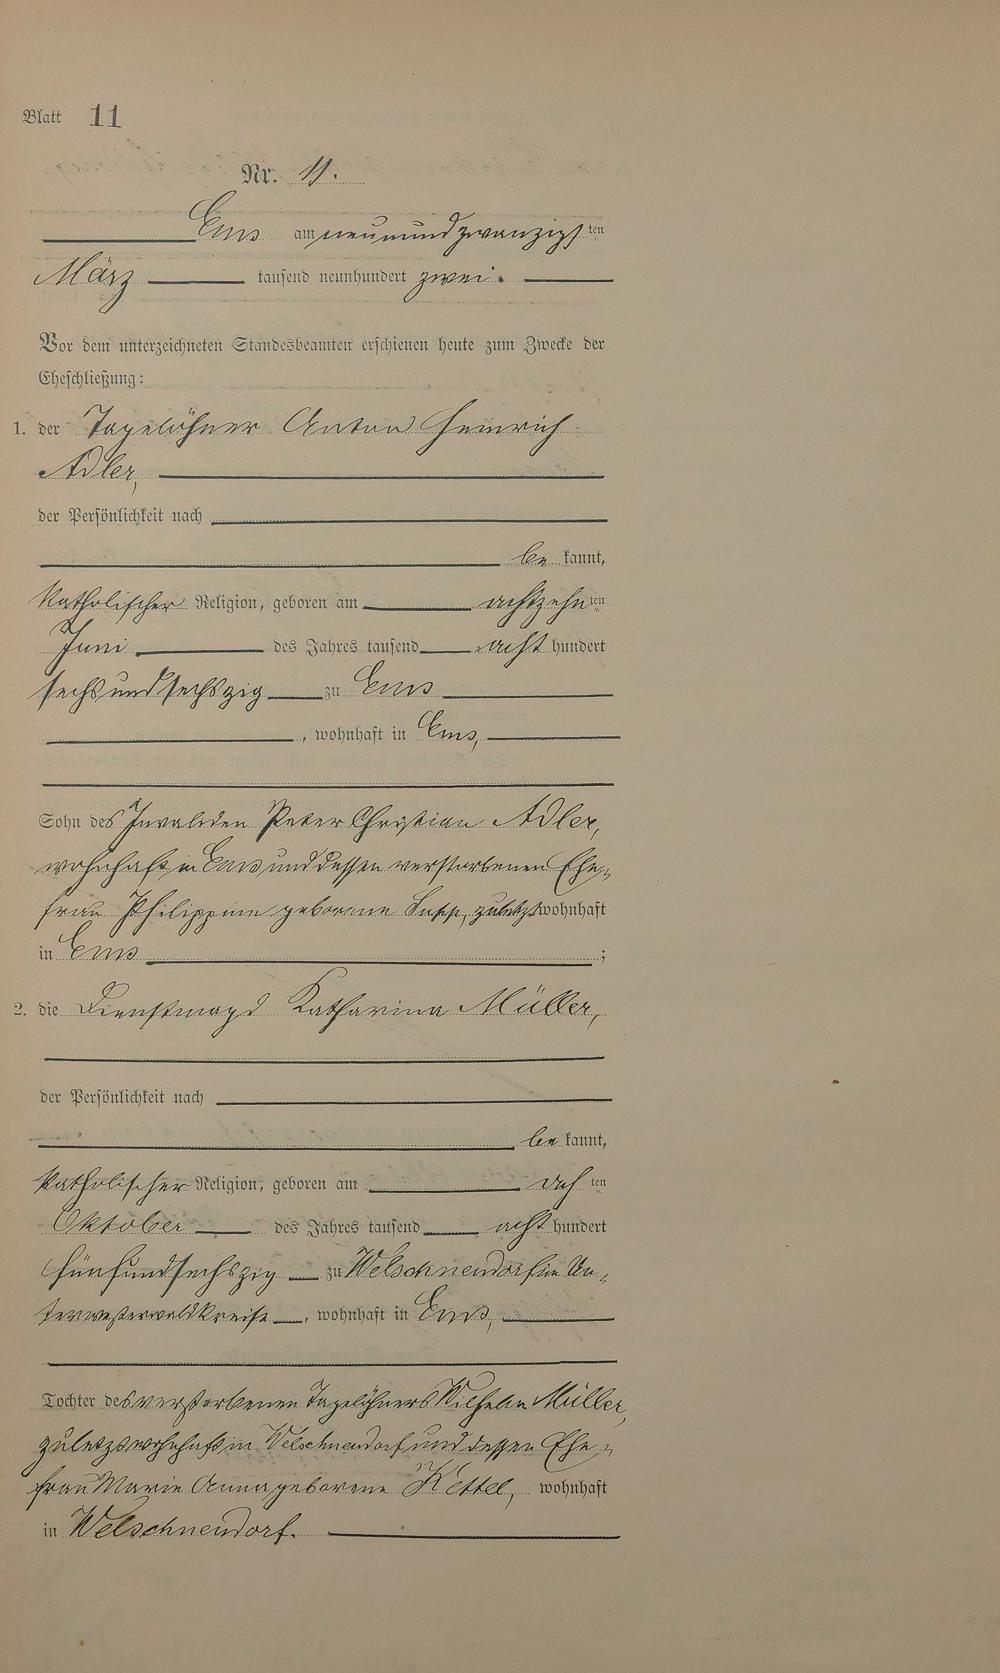 Blatt 11
Nr. 11.
Ems am neunundzwanzigsten
März tausend neunhundert zwei.
Vor dem unterzeichneten Standesbeamten erschienen heute zum Zwecke der
Eheschließung:
1. der Tagelöhner Anton Heinrich
Adler,
der Persönlichkeit nach
be kannt,
katholischer Religion, geboren am achtzehnten
Juni des Jahres tausend acht hundert
sechsundsechszig zu Ems
, wohnhaft in Ems,
Sohn des Invaliden Peter Christian Adler,
wohnhaft in Ems und dessen verstorbenen Ehe-
frau Philippine geborene zuletzt wohnhaft
in Ems ;
2. die Dienstmagd Katharina Müller,
der Persönlichkeit nach
be kannt,
katholischer Religion, geboren am ten
Oktober des Jahres tausend acht hundert
fünfundsechszig zu Welschneudorf im Un-
terwesterwaldkreise, wohnhaft in Ems,
Tochter des verstorbenen Tagelöhners Wilhelm Müller,
zuletzt wohnhaft in Welschneudorf und dessen Ehe-
frau Marie Anna geborene Kettel, wohnhaft
in Welschneudorf.